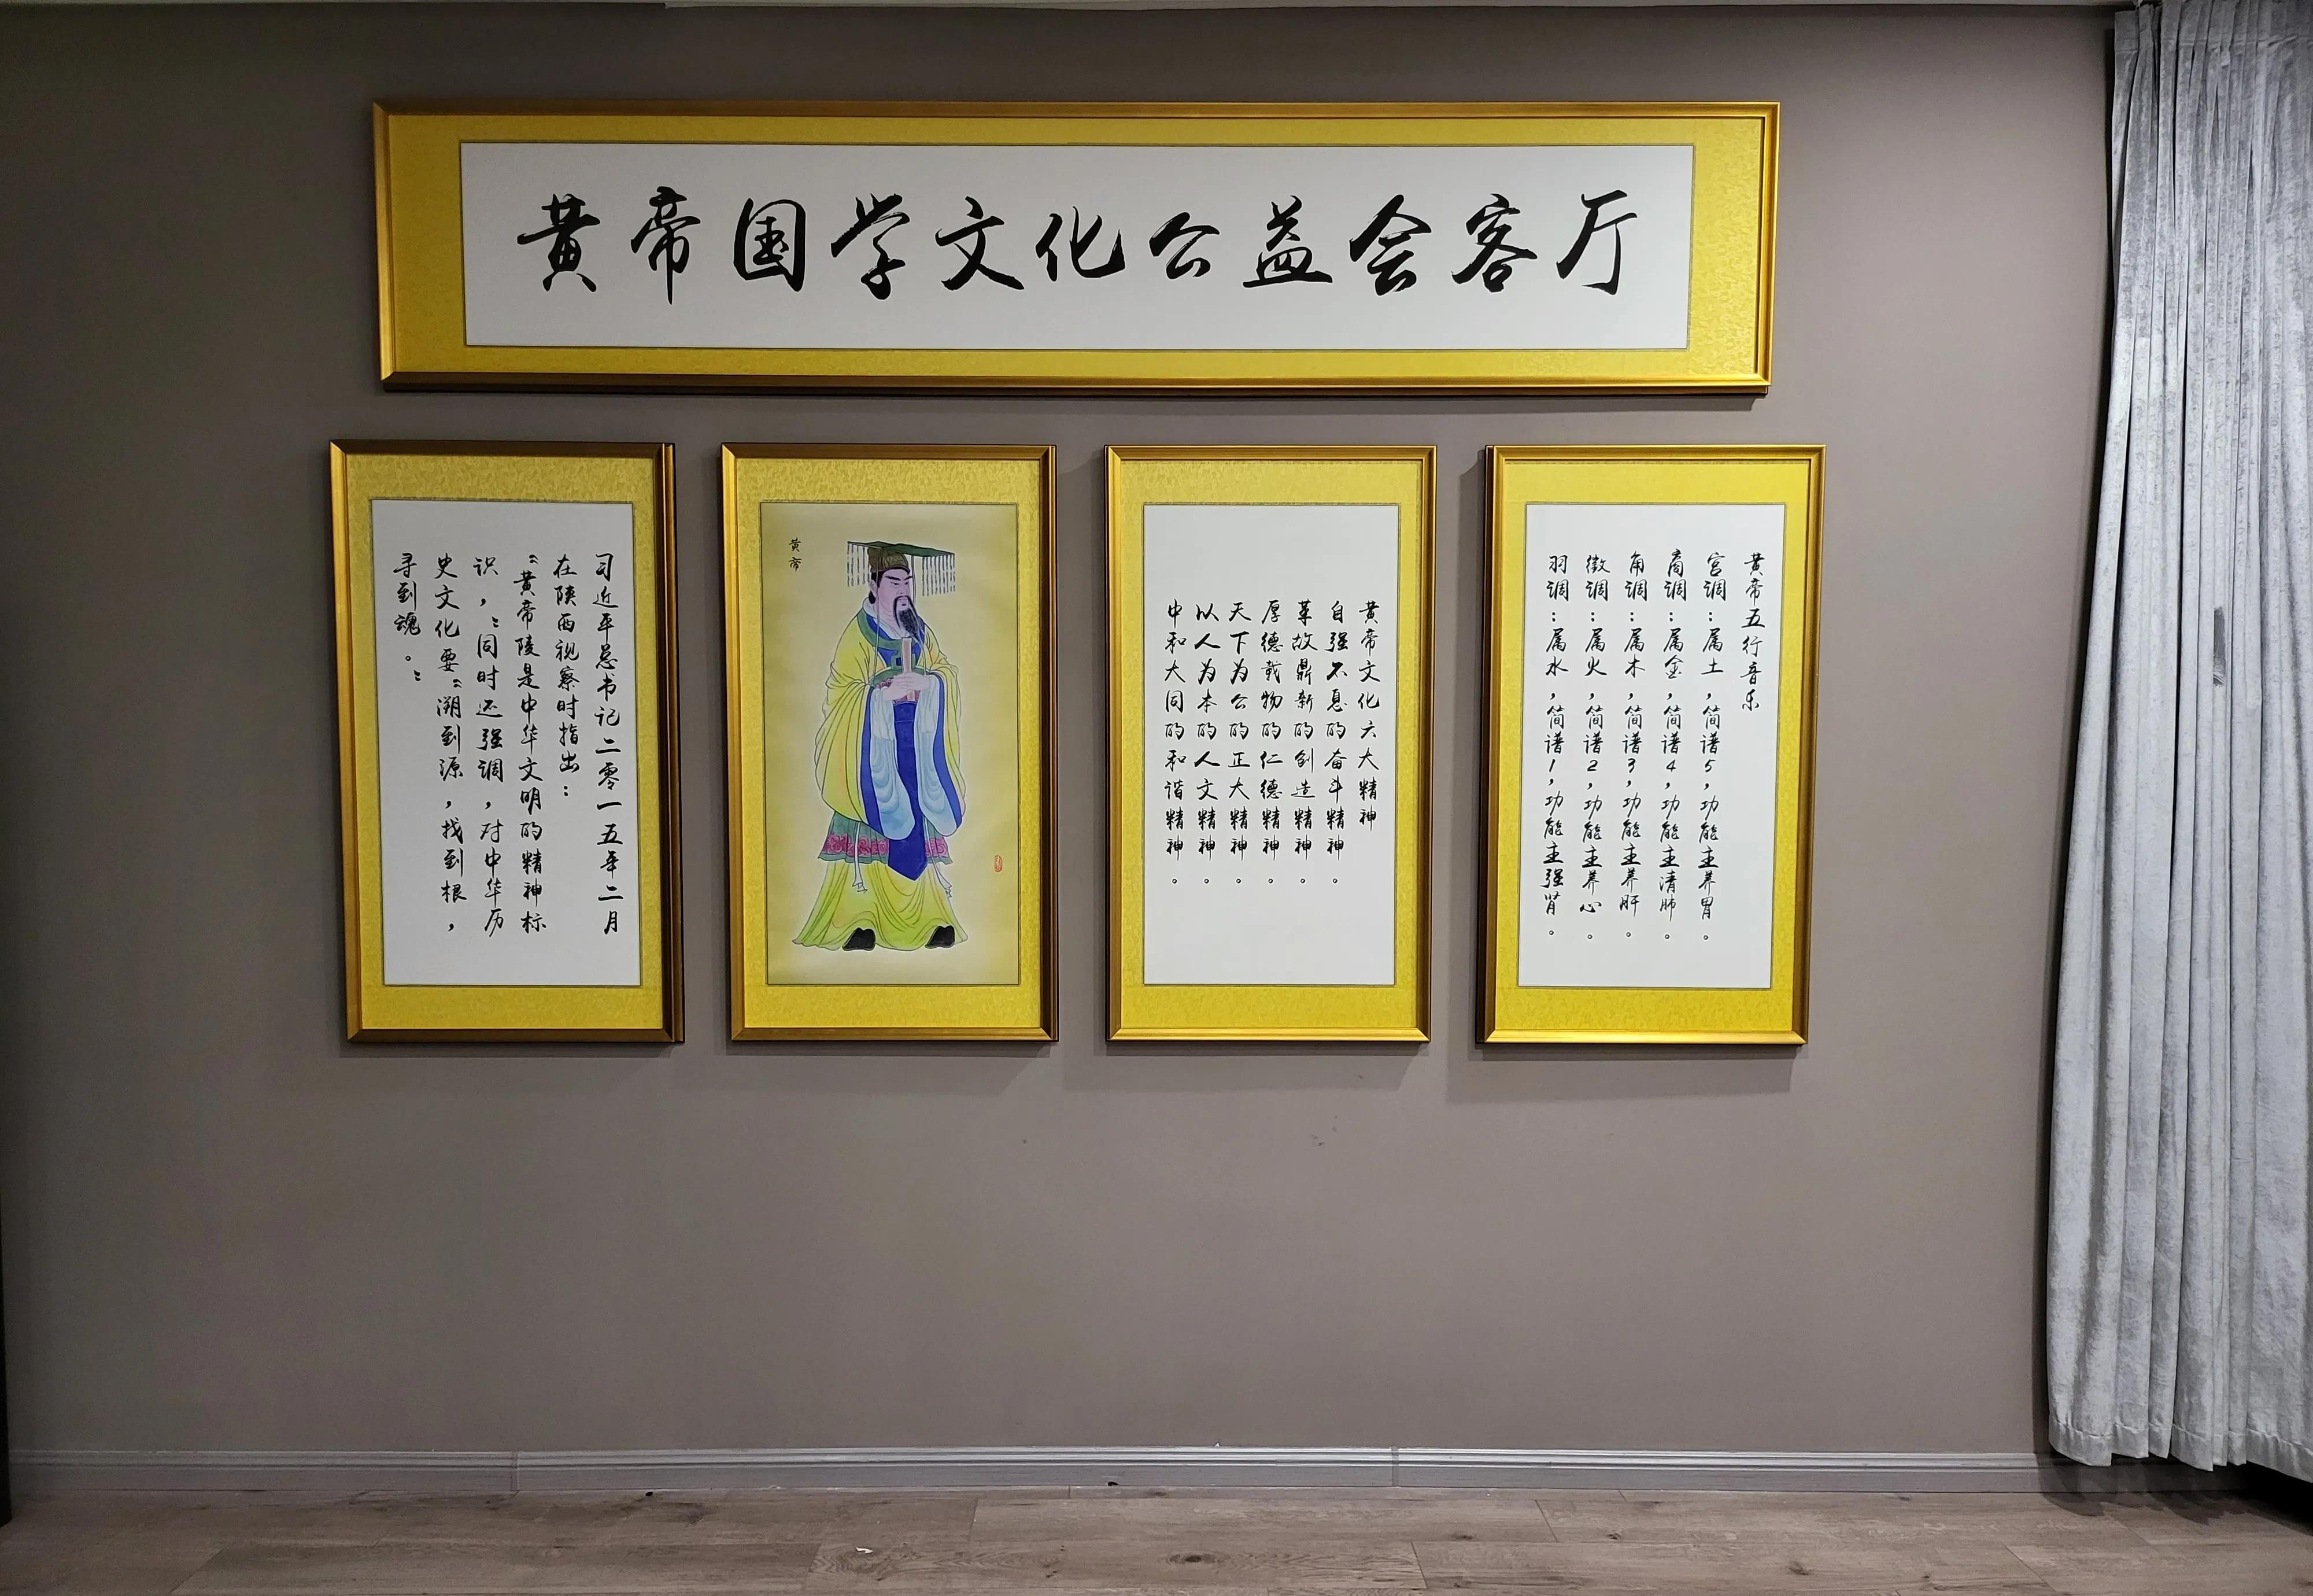 黄帝国学文化公益会客厅
习近平总书记二零一五年二月
在陕西视察时指出：
“黄帝陵是中华文明的精神标
识，”同时还强调，对中华历
史文化要“溯到源，找到根，
寻到魂。”
黄帝
黄帝文化六大精神
自强不息的奋斗精神。
革故鼎新的创造精神。
厚德载物的仁德精神。
天下为公的正大精神。
以人为本的人文精神。
中和大同的和谐精神。
黄帝五行音乐
宫调：属土，简谱5，功能主养胃。
商调：属金，简谱4，功能主清肺。
角调：属木，简谱3，功能主养肝。
徵调：属火，简谱2，功能主养心。
羽调：属水，简谱1，功能主强肾。